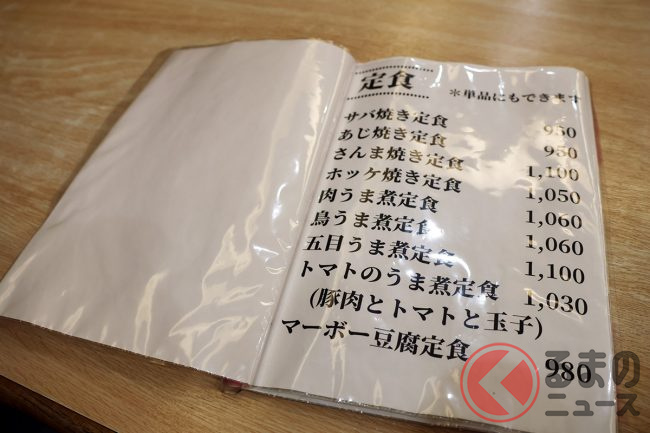 定食
＊単品にもできます
サバ焼き定食 950
あじ焼き定食 950
さんま焼き定食 1,100
ホッケ焼き定食 1,050
肉うま煮定食 1,060
鳥うま煮定食 1,060
五目うま煮定食 1,100
トマトのうま煮定食 1,030
(豚肉とトマトと玉子)
マーボー豆腐定食 980
くるまの
ニュース